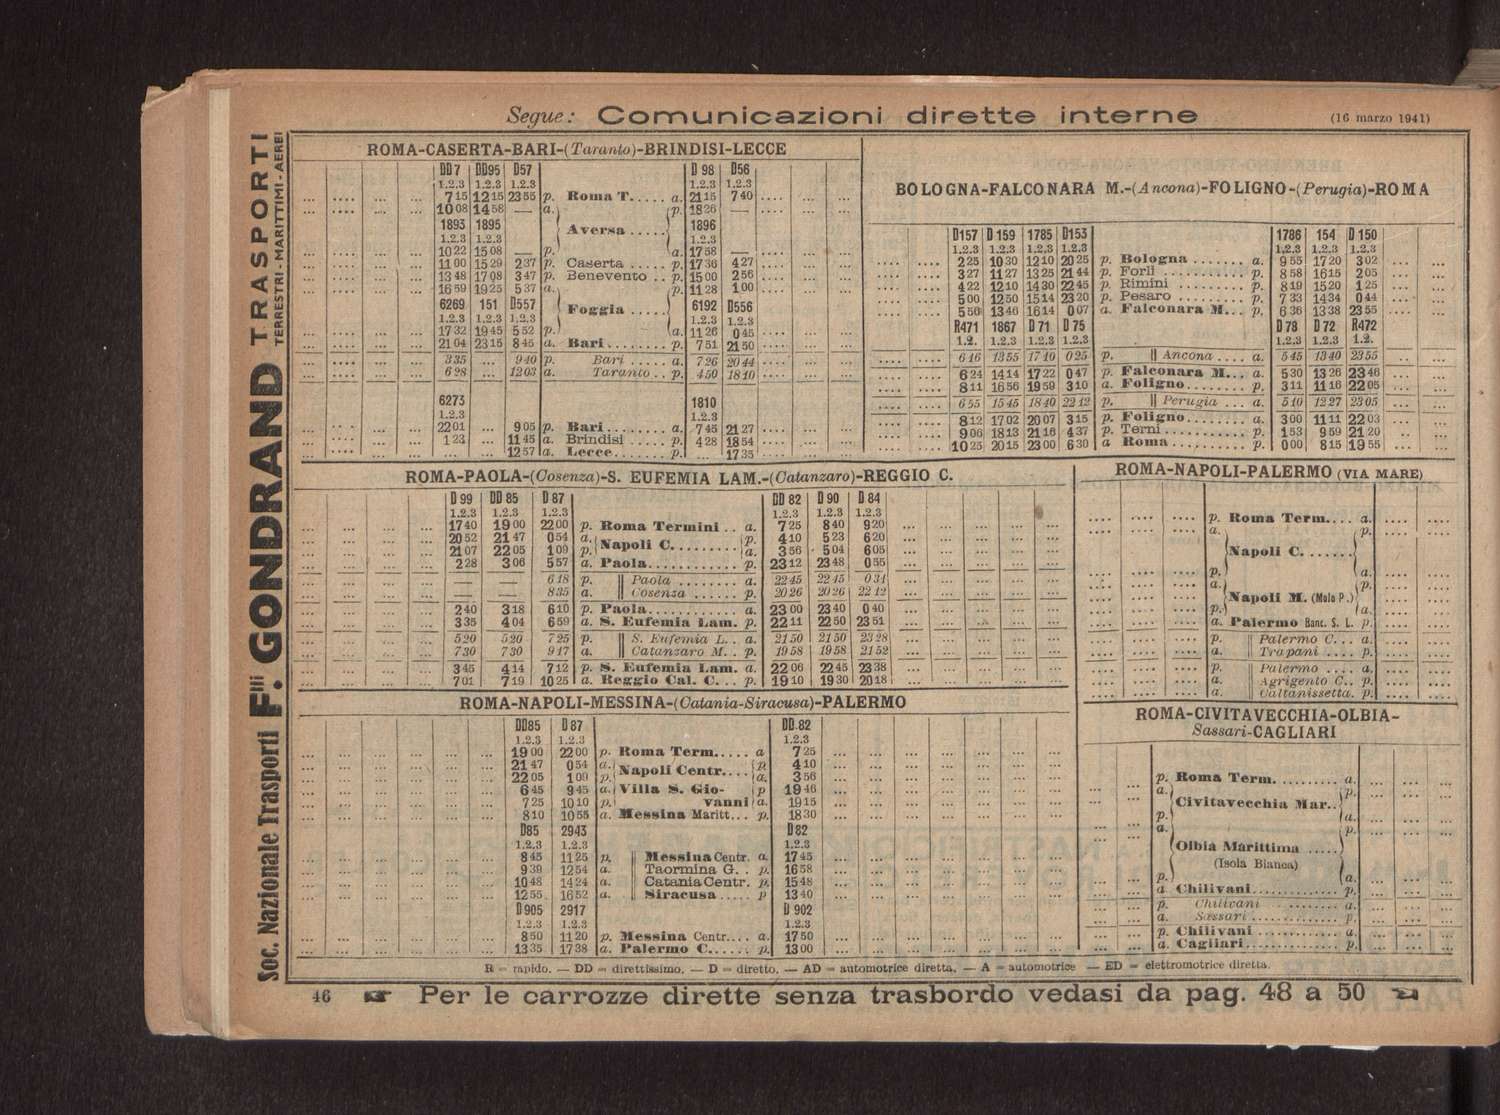 Segue: Comunicazioni dirette interne (16 marzo 1941)
Soc. Nazionale Trasporti Flli GONDRAND TRASPORTI TERRESTRI - MARITTIMI - AEREI
ROMA-CASERTA-BARI-(Taranto)-BRINDISI-LECCE
DD7 DD95 D57 D 98 D56
1.2.3 1.2.3 1.2.3 1.2.3 1.2.3
7 15 12 15 23 55 p. Roma T. .... a. 21 15 7 40
10 08 14 58 — a. Aversa ..... p. 18 26 —
1893 1895 1896
1.2.3 1.2.3 1.2.3
10 22 15 08 — p. a. 17 58 —
11 00 15 29 2 37 p. Caserta ..... p. 17 36 4 27
13 48 17 08 3 47 p. Benevento .. p. 15 00 2 56
16 59 19 25 5 37 a. Foggia ..... p. 11 28 1 00
6269 151 D557 6192 D556
1.2.3 1.2.3 1.2.3 1.2.3 1.2.3
17 32 19 45 5 52 p. a. 11 26 0 45
21 04 23 15 8 45 a. Bari ........ p. 7 51 21 50
3 35 ... 9 40 p. Bari ..... a. 7 26 20 44
6 28 ... 12 03 a. Taranto .. p. 4 50 18 10
6273 1810
1.2.3 1.2.3
22 01 ... 9 05 p. Bari ........ a. 7 45 21 27
1 23 ... 11 45 a. Brindisi ...... p. 4 28 18 54
... 12 57 a. Lecce ...... p. ... 17 35
BOLOGNA-FALCONARA M.-(Ancona)-FOLIGNO-(Perugia)-ROMA
D157 D 159 1785 D153 1786 154 D 150
1.2.3 1.2.3 1.2.3 1.2.3 1.2.3 1.2.3 1.2.3
2 25 10 30 12 10 20 25 p. Bologna ....... a. 9 55 17 20 3 02
3 27 11 27 13 25 21 44 p. Forlì .......... p. 8 58 16 15 2 05
4 22 12 10 14 30 22 45 p. Rimini ......... p. 8 19 15 20 1 25
5 00 12 50 15 14 23 20 p. Pesaro ......... p. 7 33 14 34 0 44
5 56 13 46 16 14 0 07 a. Falconara M... p. 6 36 13 38 23 55
R471 1867 D 71 D 75 D 78 D 72 R472
1.2. 1.2.3 1.2.3 1.2.3 1.2.3 1.2.3 1.2.
6 16 13 55 17 10 0 25 p. Ancona .... a. 5 45 13 40 23 55
6 24 14 14 17 22 0 47 p. Falconara M... a. 5 30 13 26 23 46
8 11 16 56 19 59 3 10 a. Foligno ........ p. 3 11 11 16 22 05
6 55 15 45 18 40 22 12 p. Perugia ... a. 5 10 12 27 23 05
8 12 17 02 20 07 3 15 p. Foligno ........ a. 3 00 11 11 22 03
9 06 18 13 21 16 4 37 p. Terni .......... p. 1 53 9 59 21 20
10 25 20 15 23 00 6 30 a Roma .......... p. 0 00 8 15 19 55
ROMA-PAOLA-(Cosenza)-S. EUFEMIA LAM.-(Catanzaro)-REGGIO C.
D 99 DD 85 D 87 DD 82 D 90 D 84
1.2.3 1.2.3 1.2.3 1.2.3 1.2.3 1.2.3
17 40 19 00 22 00 p. Roma Termini .. a. 7 25 8 40 9 20
20 52 21 47 0 54 a. Napoli C. ........ p. 4 10 5 23 6 20
21 07 22 05 1 09 p. a. 3 56 5 04 6 05
2 28 3 06 5 57 a. Paola ........... p. 23 12 23 48 0 55
— — 6 18 p. Paola ........ a. 22 45 22 45 0 31
— — 8 35 a. Cosenza ...... p. 20 26 20 26 22 12
2 40 3 18 6 10 p. Paola ........... a. 23 00 23 40 0 40
3 35 4 04 6 59 a. S. Eufemia Lam. p. 22 11 22 50 23 51
5 20 5 20 7 25 p. S. Eufemia L. . a. 21 50 21 50 23 28
7 30 7 30 9 17 a. Catanzaro M. . p. 19 58 19 58 21 52
3 45 4 14 7 12 p. S. Eufemia Lam. a. 22 06 22 45 23 38
7 01 7 19 10 25 a. Reggio Cal. C... p. 19 10 19 30 20 18
ROMA-NAPOLI-PALERMO (VIA MARE)
p. Roma Term.... a.
a. Napoli C. ...... p.
p. a.
a. Napoli M. (Molo P.) p.
p. a.
a. Palermo Banc. S. L. p.
p. Palermo C... a.
a. Trapani .... p.
p. Palermo .... a.
a. Agrigento C.. p.
a. Caltanissetta. p.
ROMA-NAPOLI-MESSINA-(Catania-Siracusa)-PALERMO
DD85 D 87 DD.82
1.2.3 1.2.3 1.2.3
19 00 22 00 p. Roma Term..... a 7 25
21 47 0 54 a. Napoli Centr.... p. 4 10
22 05 1 09 p. a. 3 56
6 45 9 45 a. Villa S. Gio- p 19 46
7 25 10 10 p. vanni a. 19 15
8 10 10 55 a. Messina Maritt... p. 18 30
D85 2943 D82
1.2.3 1.2.3 1.2.3
8 45 11 25 p. Messina Centr. a. 17 45
9 39 12 54 a. Taormina G. . p. 16 58
10 48 14 24 a. Catania Centr. p. 15 48
12 55 16 52 a. Siracusa ..... p 13 40
D905 2917 D 902
1.2.3 1.2.3 1.2.3
8 50 11 20 p. Messina Centr.... a. 17 50
13 35 17 38 a. Palermo C. ..... p. 13 00
ROMA-CIVITAVECCHIA-OLBIA-
Sassari-CAGLIARI
p. Roma Term. ......... a.
a. Civitavecchia Mar.. p.
p. a.
a. Olbia Marittima ..... p.
(Isola Bianca)
p. a.
a Chilivani ............ p.
p. Chilivani .......... a.
a. Sassari ............ p.
p. Chilivani ............ a.
a. Cagliari ............. p.
R = rapido. — DD = direttissimo. — D = diretto. — AD = automotrice diretta. — A = automotrice — ED = elettromotrice diretta.
46 ☛ Per le carrozze dirette senza trasbordo vedasi da pag. 48 a 50 ☚